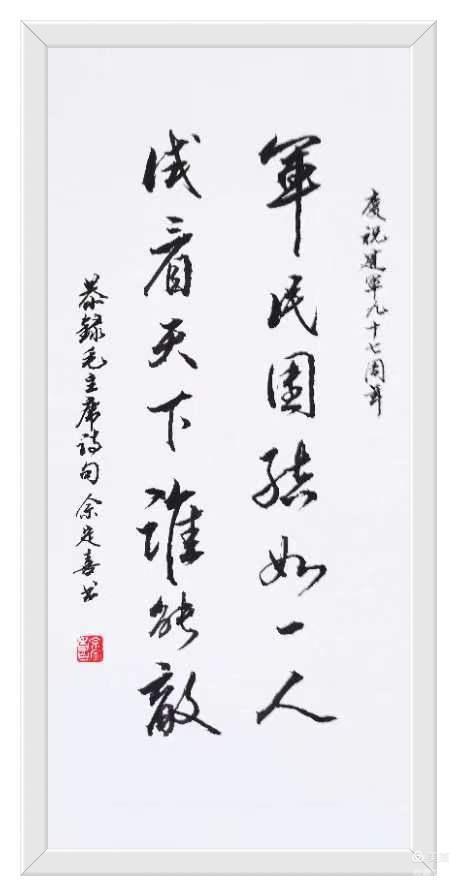 慶祝建軍九十七周年
軍民團結如一人
试看天下誰能敵
恭錄毛主席詩句余定喜书